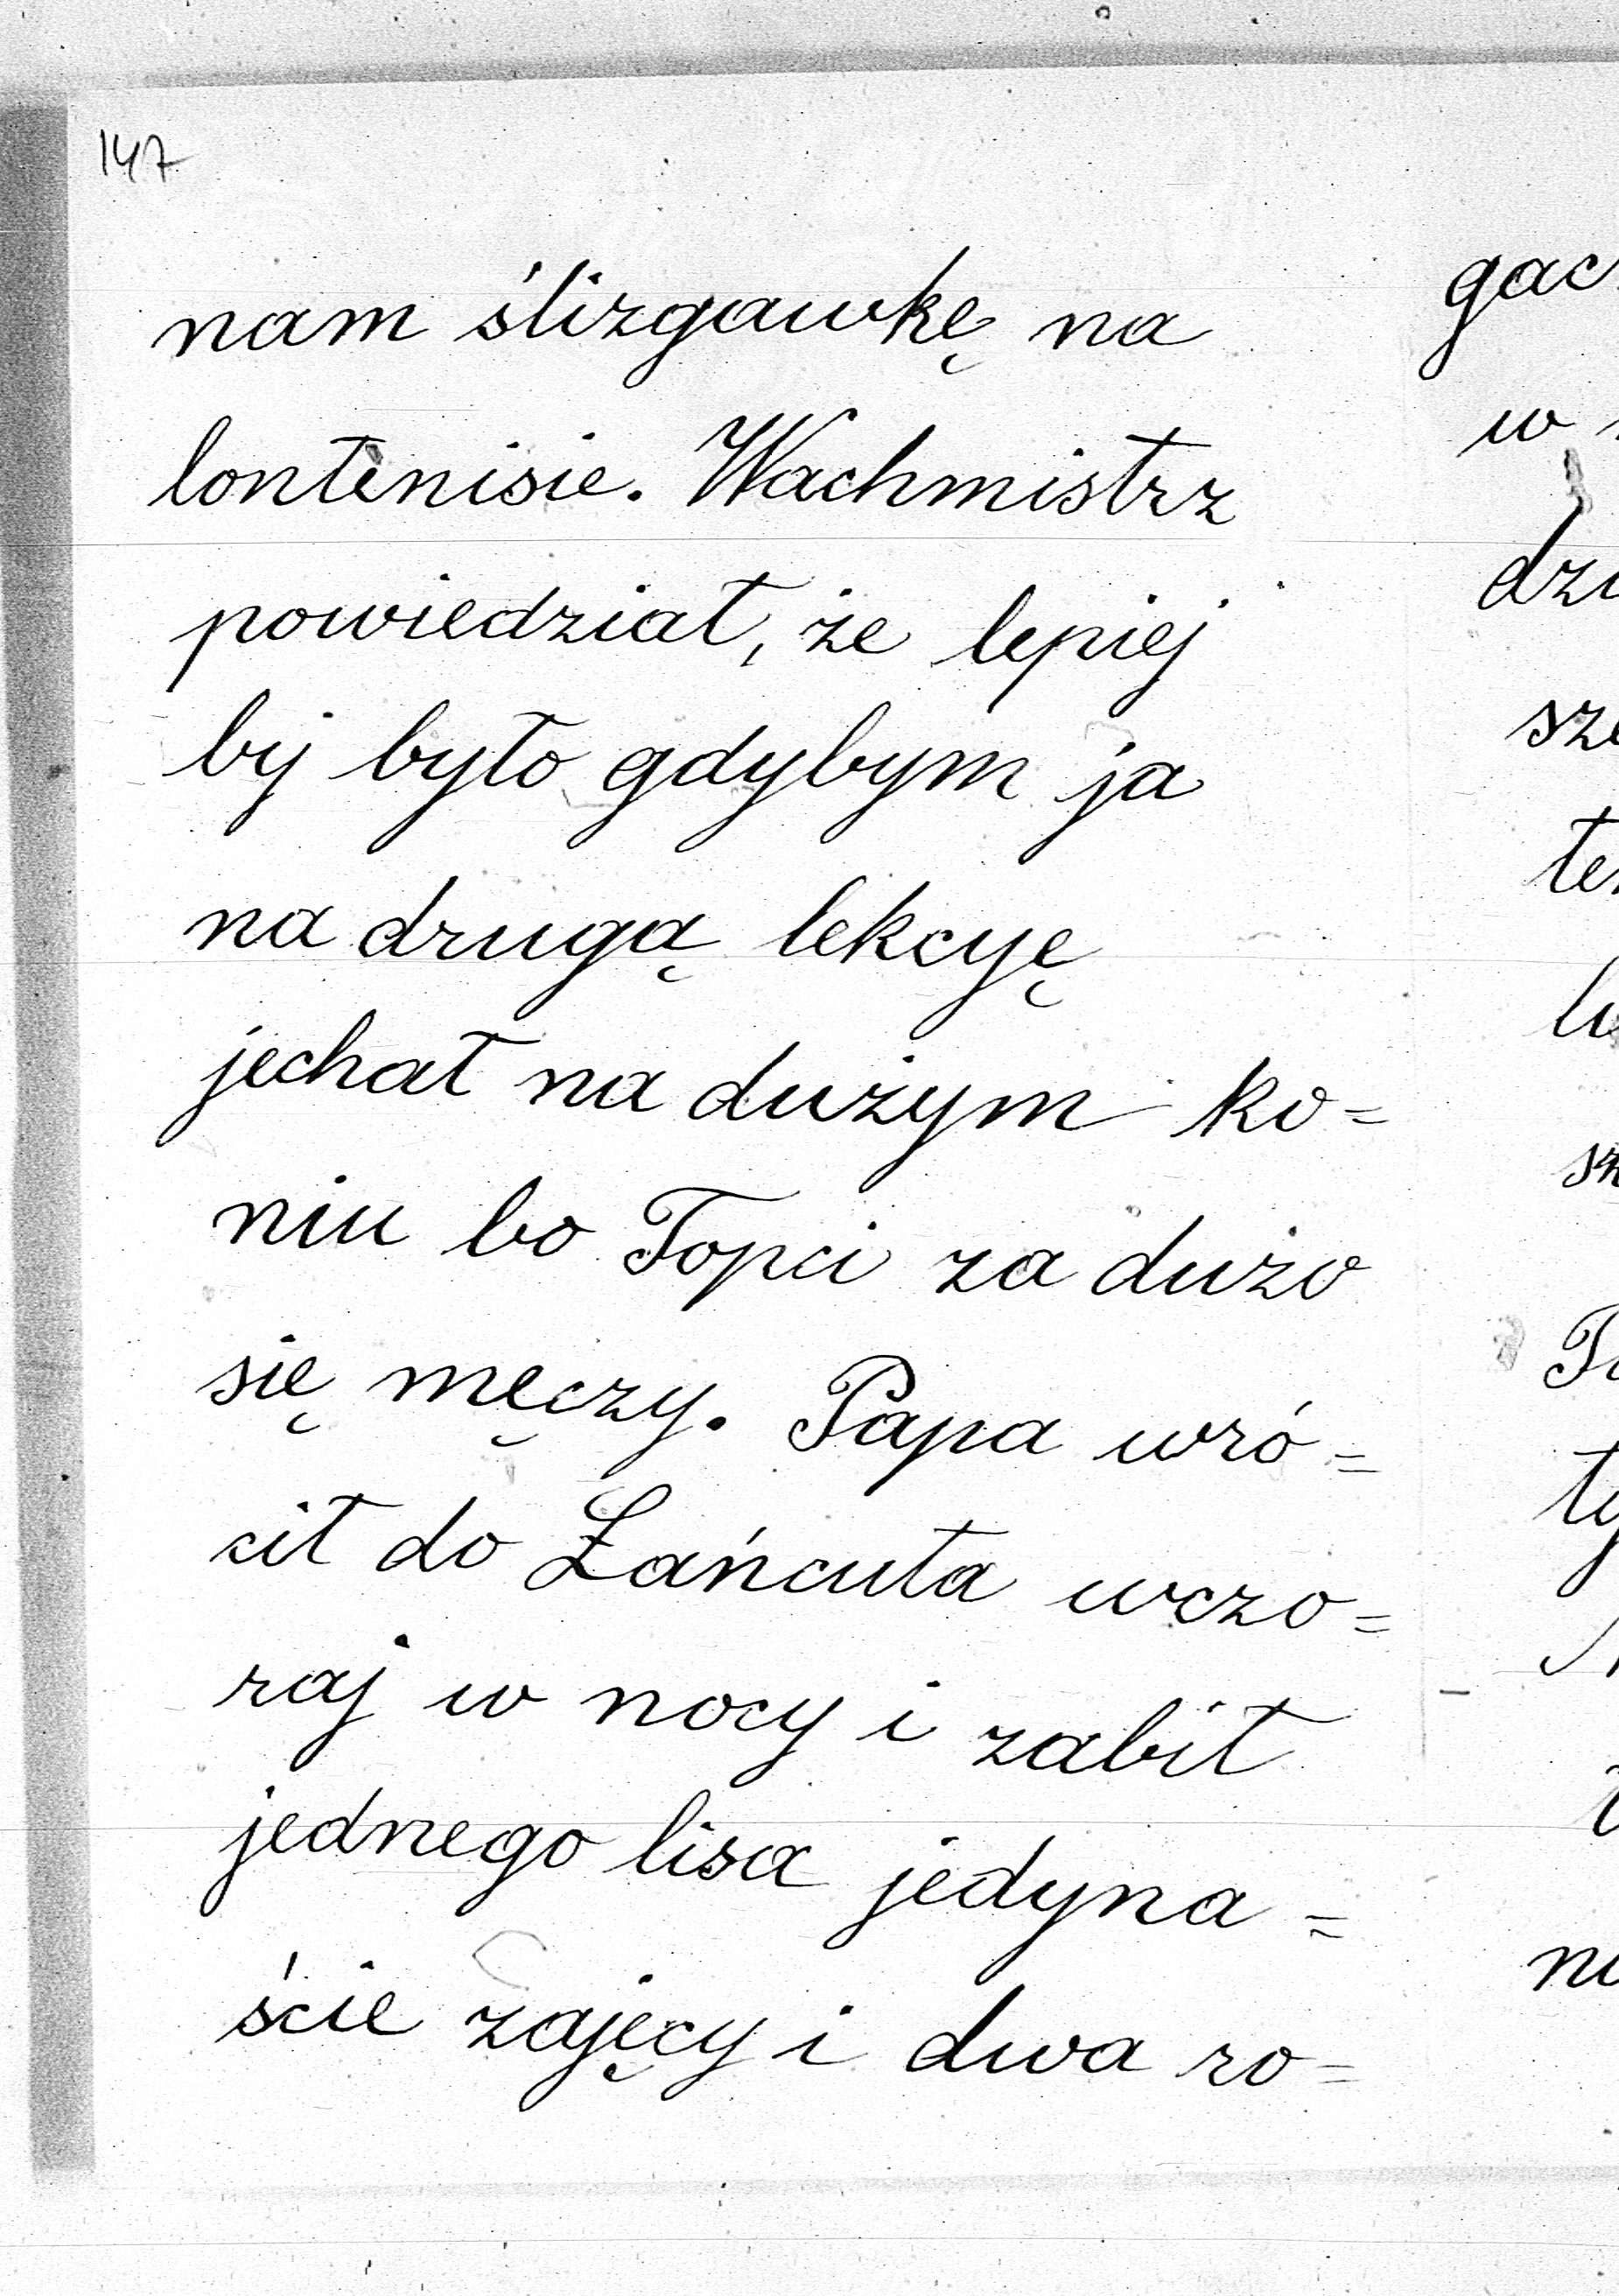 147
nam ślizgawkę na
lontenisie. Wachmistrz
powiedział, że lepiej
by było gdybym ja
na drugą lekcyę
jechał na dużym ko=
niu bo Topci za dużo
się męczy. Papa wró=
cił do Łańcuta wczo=
raj w nocy i zabił
jednego lisa jedyna=
ście zajęcy i dwa ro=